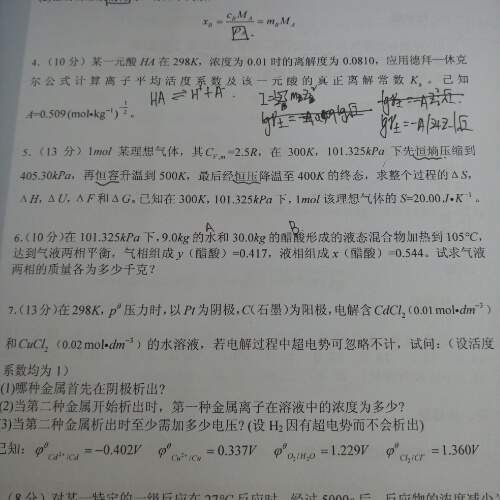 x_B = c_B M_A / ρ_A = m_B M_A
4.(10分)某一元酸 HA 在 298K,浓度为 0.01 时的离解度为 0.0810,应用德拜—休克
尔公式计算离子平均活度系数及该一元酸的真正离解常数 K。已知
A=0.509 (mol•kg⁻¹)^(-1/2)。
HA ⇌ H⁺ + A⁻.
lgγ± = -A|Z+Z-|√I
5.(13 分)1mol 某理想气体,其C_V,m=2.5R,在 300K,101.325kPa 下先恒熵压缩到
405.30kPa,再恒容升温到 500K,最后经恒压降温至 400K 的终态,求整个过程的△S,
△H,△U,△F 和△G。已知在 300K,101.325kPa 下,1mol 该理想气体的 S=20.00J•K⁻¹。
A B
6.(10 分)在 101.325kPa 下,9.0kg 的水和 30.0kg 的醋酸形成的液态混合物加热到 105℃,
达到气液两相平衡,气相组成 y(醋酸)=0.417,液相组成 x(醋酸)=0.544。试求气液
两相的质量各为多少千克?
7.(13分)在298K,p^θ 压力时,以 Pt 为阴极,C(石墨)为阳极,电解含CdCl₂(0.01mol•dm⁻³)
和CuCl₂(0.02mol•dm⁻³)的水溶液,若电解过程中超电势可忽略不计,试问:(设活度
系数均为 1)
(1)哪种金属首先在阴极析出?
(2)当第二种金属开始析出时,第一种金属离子在溶液中的浓度为多少?
(3)当第二种金属析出时至少需加多少电压?(设 H₂因有超电势而不会析出)
已知:φ^θ_Cd²⁺/Cd = -0.402V φ^θ_Cu²⁺/Cu = 0.337V φ^θ_O₂/H₂O = 1.229V φ^θ_Cl₂/Cl⁻ = 1.360V
(8分)对某一特定的一级反应在27℃反应时,经过5000s后,反应物的浓度减少